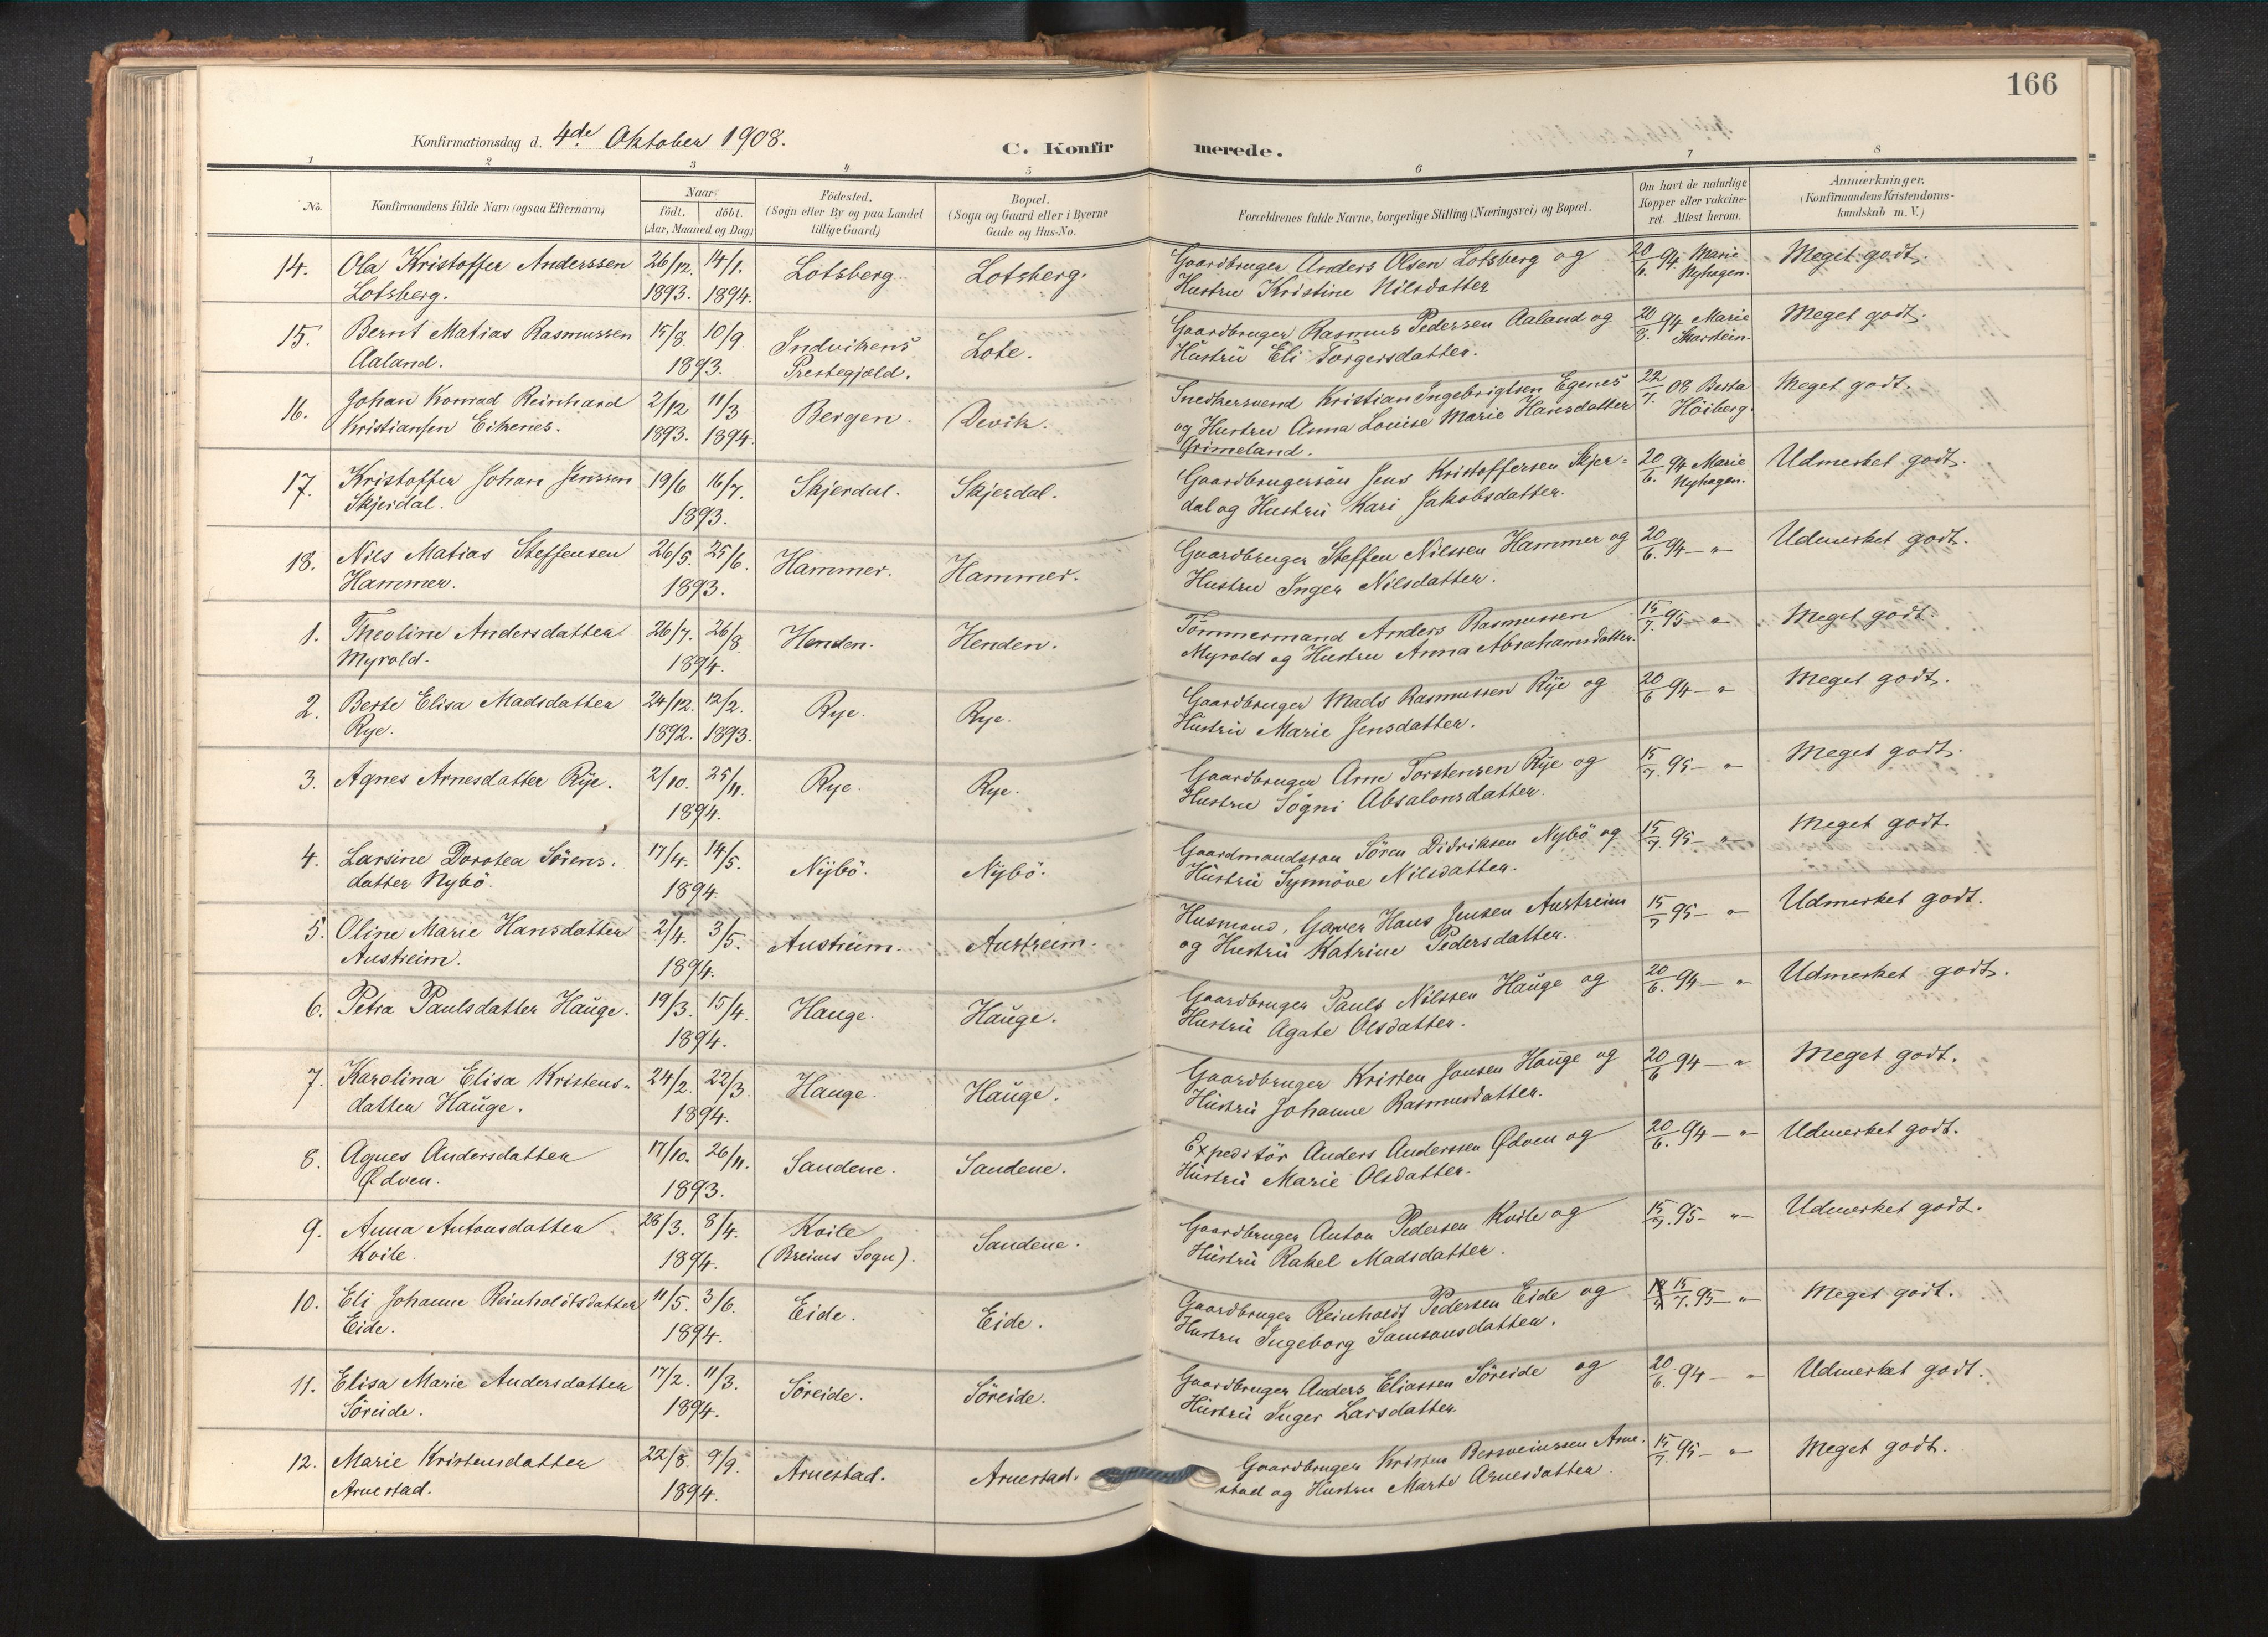 166
Konfirmationsdag d. 4de Oktober 1908.
C. Konfirmerede.
1 2 3 4 5 6 7 8
No.
Konfirmandens fulde Navn (ogsaa Efternavn)
Naar
födt. döbt.
(Aar, Maaned og Dag)
Födested.
(Sogn eller By og paa Landet
tillige Gaard)
Bopæl.
(Sogn og Gaard eller i Byerne
Gade og Hus-No.
Forældrenes fulde Navne, borgerlige Stilling (Næringsvei) og Bopæl.
Om havt de naturlige
Kopper eller vakcine-
ret Attest herom.
Anmærkninger.
(Konfirmandens Kristendoms-
kundskab m. V.)
14. Ola Kristoffer Anderssen 26/12. 14/1. Lotsberg. Lotsberg. Gaardbruger Anders Olsen Lotsberg og 20/6. 94 Marie Meget godt.
Lotsberg. 1893. 1894. Hustru Kristine Nilsdatter Nyhagen.
15. Bernt Matias Rasmussen 15/8. 10/9. Indvikens Lote. Gaardbruger Rasmus Pedersen Aaland og 20/8. 94 Marie Meget godt.
Aaland. 1893. Prestegjæld. Hustrü Eli Torgersdatter. Skarstein.
16. Johan Konrad Reinhard 2/12 11/3 Bergen. Devik. Snedkersvend Kristian Ingebrigtsen Egenes 22/7. 08 Berta Meget godt.
Kristiansen Eikenes. 1893. 1894. og Hustru Anna Louise Marie Hansdatter Höiberg.
Grimeland.
17. Kristoffer Johan Jenssen 19/6 16/7. Skjerdal. Skjerdal. Gaardbrugersön Jens Kristoffersen Skjer- 20/6. 94 Marie Udmerket godt.
Skjerdal. 1893. dal og Hustrü Kari Jakobsdatter. Nyhagen.
18. Nils Matias Steffensen 26/5. 25/6. Hammer. Hammer. Gaardbruger Steffen Nilssen Hammer og 20/6. 94 — " Udmerket godt.
Hammer. 1893. Hustru Inger Nilsdatter.
1. Theoline Andersdatter 26/7. 26/8 Henden. Henden. Tömmermand Anders Rasmussen 15/7. 95 — " Meget godt.
Myrold. 1894. Myrold og Hustru Anna Abrahamsdatter.
2. Berte Elisa Madsdatter 24/12. 12/2. Rye. Rye. Gaardbruger Mads Rasmussen Rÿe og 20/6 94 — " Meget godt.
Rye. 1892. 1893. Hüstrü Marie Jensdatter.
3. Agnes Arnesdatter Rÿe. 2/10. 25/11. Rye. Rye. Gaardbruger Arne Torstensen Rÿe og 15/7. 95 — " Meget godt.
1894. Hustru Sögni Absalonsdatter.
4. Larsine Dorotea Sörens- 17/4. 14/5. Nÿbö. Nÿbö. Gaardmandsson Sören Didriksen Nÿbö og 15/7 95 — " Meget godt.
datter Nybö. 1894. Hüstrü Synnöve Nilsdatter.
5. Oline Marie Hansdatter 2/4. 3/5. Austreim. Austreim. Husmand, Garver Hans Jensen Austreim 15/7 95 — " Udmerket godt.
Austreim. 1894. og Hustrü Katrine Pedersdatter.
6. Petra Paulsdatter Haüge. 19/3. 15/4. Hauge. Haüge. Gaardbruger Pauls Nilssen Haüge og 20/6. 94 — " Udmerket godt.
1894. Hustrü Agate Olsdatter.
7. Karolina Elisa Kristens- 24/2. 22/3. Hauge. Haüge. Gaardbruger Kristen Jonsen Haüge og 20/6 94 — " Meget godt.
datter Haüge. 1894. Hüstrü Johanne Rasmusdatter.
8. Agnes Andersdatter 17/10. 26/11. Sandene. Sandene. Expeditör Anders Anderssen Ødven og 20/6. 94 — " Udmerket godt.
Ødven. 1893. Hüstrü Marie Olsdatter.
9. Anna Antonsdatter 28/3. 8/4. Kvile Sandene. Gaardbruger Anton Pedersen Kvile og 15/7. 95 — " Udmerket godt.
Kvile. 1894. (Breims Sogn). Hüstrü Rakel Madsdatter.
10. Eli Johanne Reinholdtsdatter 11/5. 3/6. Eide. Eide. Gaardbruger Reinholdt Pedersen Eide og 15/7. 95 — " Meget godt.
Eide. 1894. Hustru Ingeborg Samsonsdatter.
11. Elisa Marie Andersdatter 17/2. 11/3. Söreide. Söreide. Gaardbruger Anders Eliassen Söreide og 20/6. 94 — " Udmerket godt.
Söreide. 1894. Hüstrü Inger Larsdatter.
12. Marie Kristensdatter 22/8. 9/9. Arnestad. Arnestad. Gaardbruger Kristen Bersveinssen Arne- 15/7. 95 — " Meget godt.
Arnestad. 1894. stad og Hustru Marte Arnesdatter.